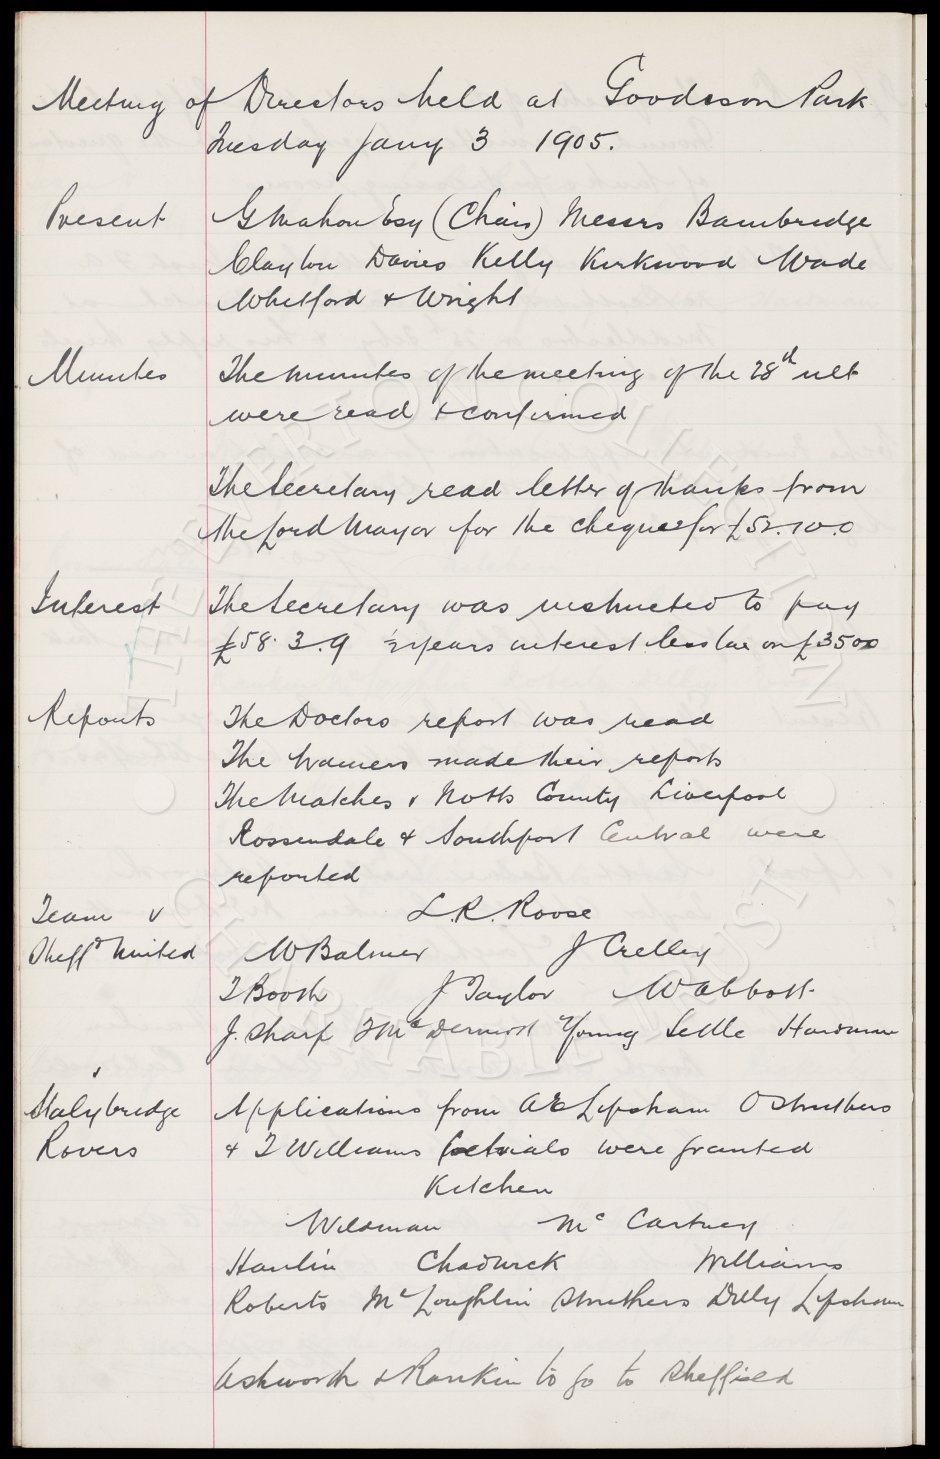 Meeting of Directors held at Goodison Park
Tuesday Jany 3 1905.
Present G Mahon Esq (Chair) Messrs Bainbridge
Clayton Davies Kelly Kirkwood Wade
Whitford & Wright
Minutes The minutes of the meeting of the 28th ult
were read & confirmed
The Secretary read letter of thanks from
the Lord Mayor for the cheque for £52.10.0
Interest The Secretary was instructed to pay
£58.3.9 ½ years interest less tax on £3500
Reports The Doctors report was read
The Trainers made their reports
The Matches v Notts County Liverpool
Rossendale & Southport Central were
reported
Team v L.R. Roose
Sheffd United W Balmer J Crelley
T Booth J Taylor W Abbott
J. Sharp T McDermott Young Settle Hardman
Stalybridge Applications from A E Lipsham O Struthers
Rovers & T Williams for trials were granted
Kitchen
Wildman McCartney
Hanlin Chadwick Williams
Roberts McLoughlin Struthers Dilly Lipsham
Ashworth & Rankin to go to Sheffield